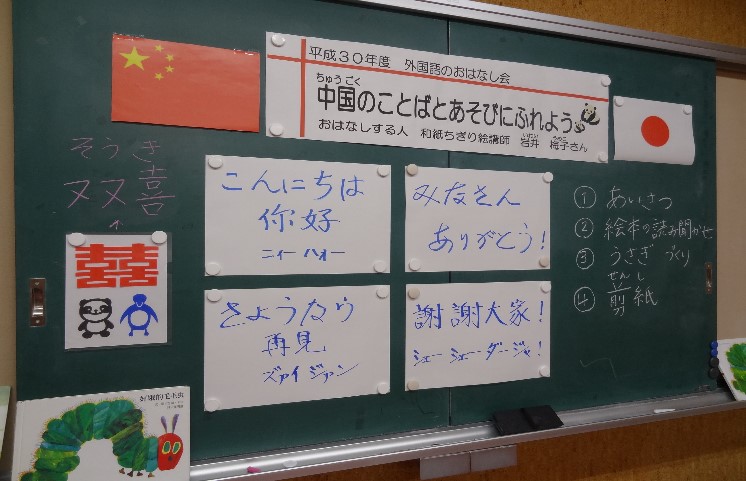 平成30年度 外国語のおはなし会
ちゅうごく
中国のことばとあそびにふれよう
おはなしする人 和紙ちぎり絵講師 岩井 梅子さん
そうき
双喜
囍
こんにちは
你好
ニィーハオー
みなさん
ありがとう!
さようなら
再見
ズァイジァン
謝謝大家!
シェーシェーダージャ!
① あいさつ
② 絵本の読み聞かせ
③ うさぎづくり
せんし
④ 剪紙
好饿的毛毛虫